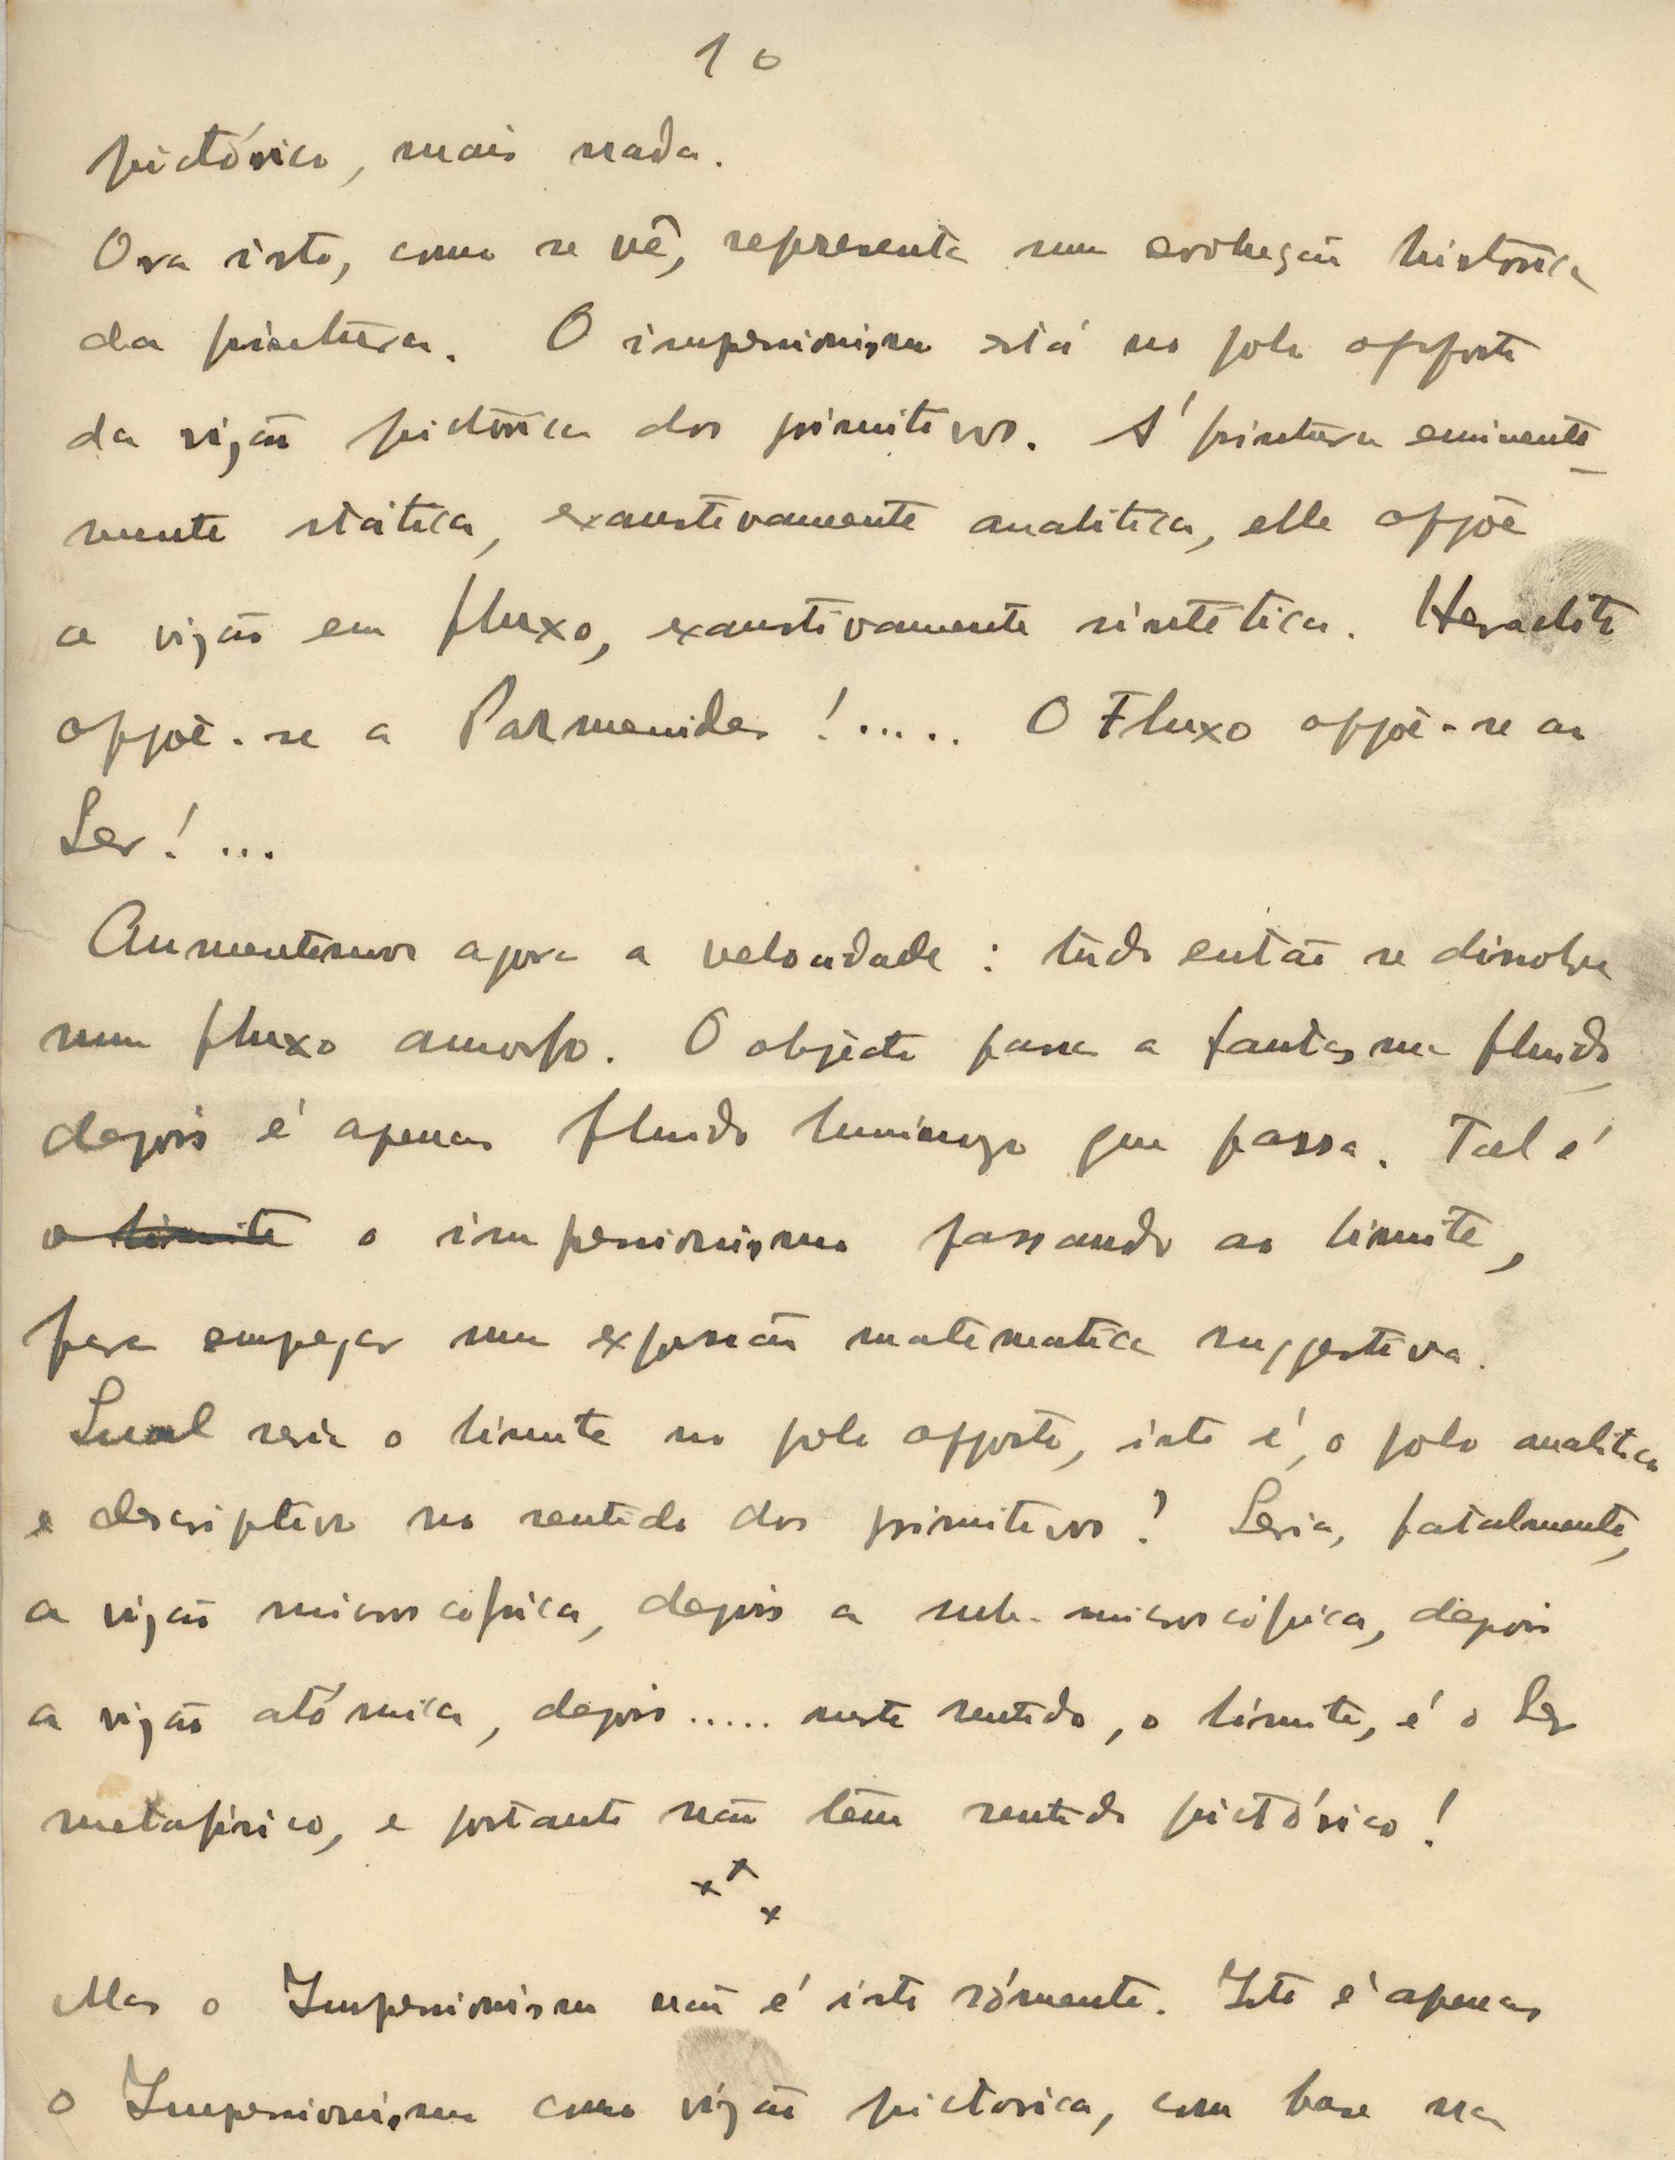 10
pictórico, mais nada.
Ora isto, como se vê, representa uma evolução historica
da pintura. O impressionismo está no polo opposto
da vizão pictorica dos primitivos. Á pintura eminente-
mente státtica, exaustivamente analitica, elle oppõe
a vizão em fluxo, exaustivamente sintética. Heraclito
oppõe-se a Parmenides!..... O Fluxo oppõe-se ao
Ser!...
Aumentemos agora a velocidade: tudo então se dissolve
num fluxo amorfo. O objecto passa a fantasma fluido,
depois é apenas fluido luminozo que passa. Tal é
o limite o impressionismo passando ao limite,
para empregar uma expressão matematica suggestiva.
Qual seria o limite no polo opposto, isto é, o polo analitico
e descriptivo no sentido dos primitivos? Seria, fatalmente,
a vizão microscópica, depois a sub-microscópica, depois
a vizão atómica, depois..... neste sentido, o limite, é o Ser
metafísico, e portanto não têm sentido pictórico!
x x x
Mas o Impressionismo não é isto sómente. Isto é apenas
o Impressionismo como vizão pictorica, com base na